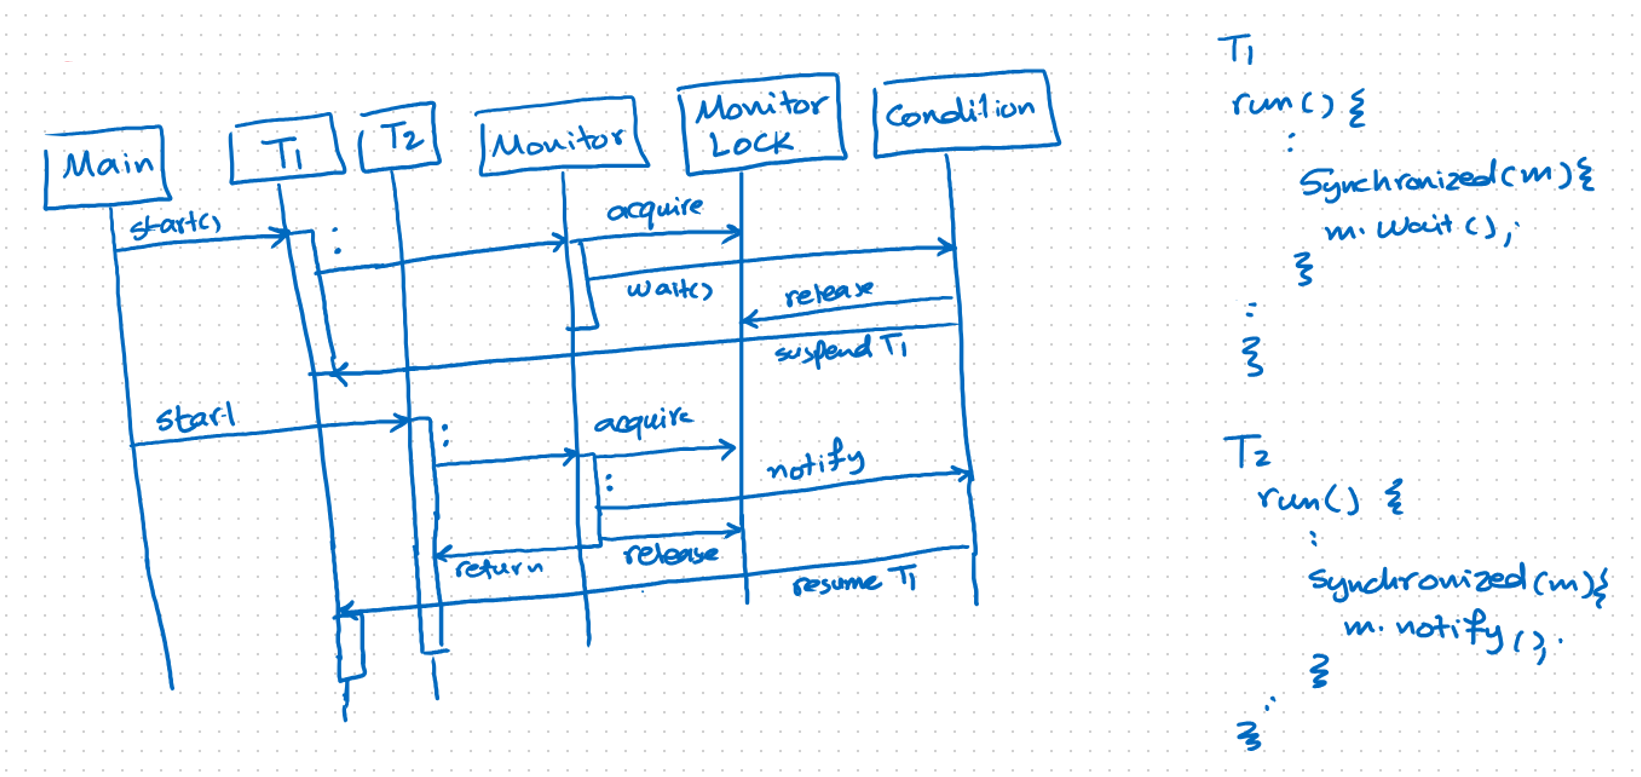 Main
T1
T2
Monitor
Monitor
Lock
Condition
start()
:
acquire
wait()
release
suspend T1
start
:
acquire
:
notify
release
return
resume T1
T1
run() {
:
Synchronized(m){
m.wait();
}
:
}
T2
run() {
:
Synchronized(m){
m.notify();
}
:
}